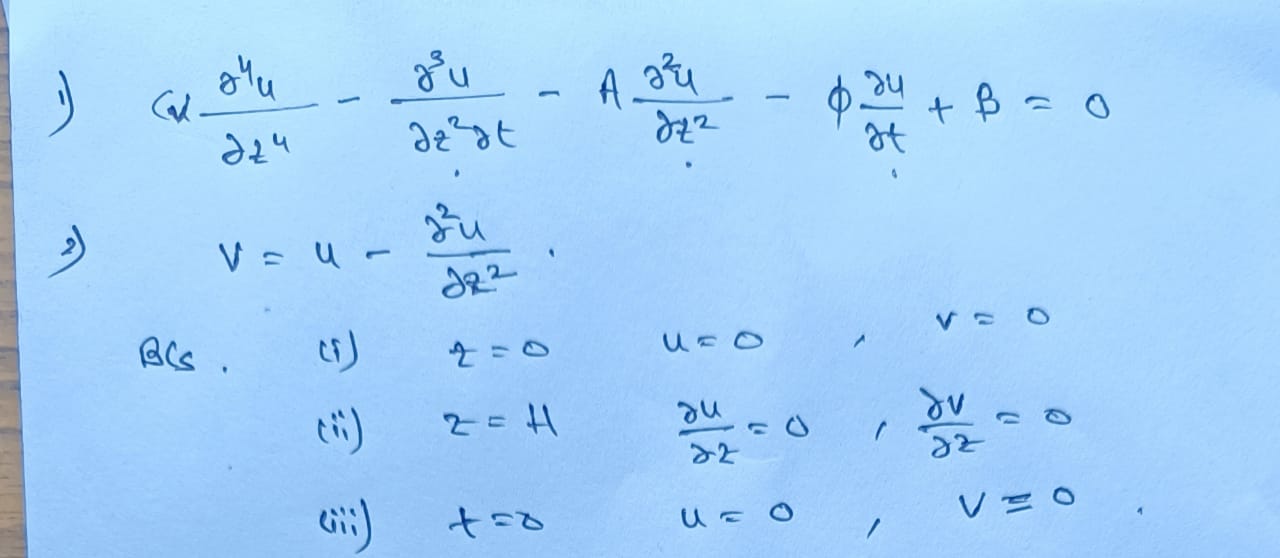 1) α ∂⁴u/∂z⁴ - ∂³u/∂z²∂t - A ∂²u/∂z² - ϕ ∂u/∂t + B = 0
2) v = u - ∂²u/∂z² .
BCs . (i) z = 0 u = 0 , v = 0
(ii) z = H ∂u/∂z = 0 , ∂v/∂z = 0
(iii) t = 0 u = 0 , v = 0 .